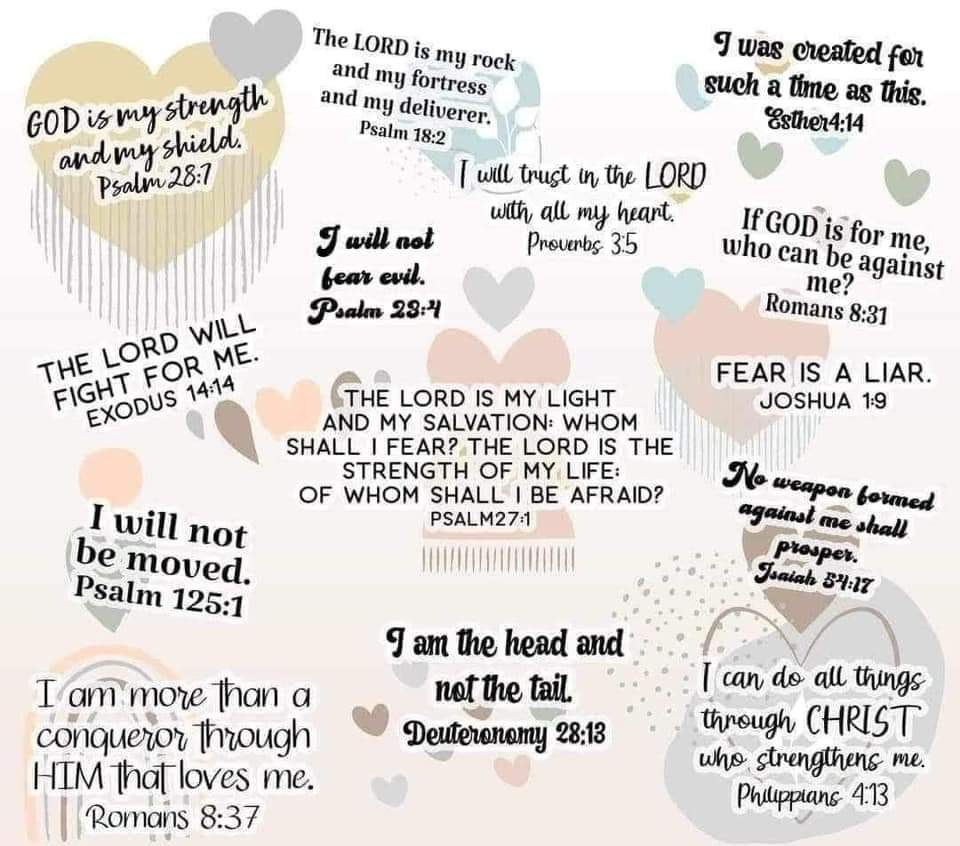 GOD is my strength
and my shield.
Psalm 28:7
The LORD is my rock
and my fortress
and my deliverer.
Psalm 18:2
I was created for
such a time as this.
Esther4:14
I will trust in the LORD
with all my heart.
Proverbs 3:5
I will not
fear evil.
Psalm 23:4
If GOD is for me,
who can be against
me?
Romans 8:31
THE LORD WILL
FIGHT FOR ME.
EXODUS 14:14
THE LORD IS MY LIGHT
AND MY SALVATION: WHOM
SHALL I FEAR? THE LORD IS THE
STRENGTH OF MY LIFE:
OF WHOM SHALL I BE AFRAID?
PSALM27:1
FEAR IS A LIAR.
JOSHUA 1:9
No weapon formed
against me shall
prosper.
Isaiah 54:17
I will not
be moved.
Psalm 125:1
I am the head and
not the tail.
Deuteronomy 28:13
I am more than a
conqueror through
HIM that loves me.
Romans 8:37
I can do all things
through CHRIST
who strengthens me.
Philippians 4:13